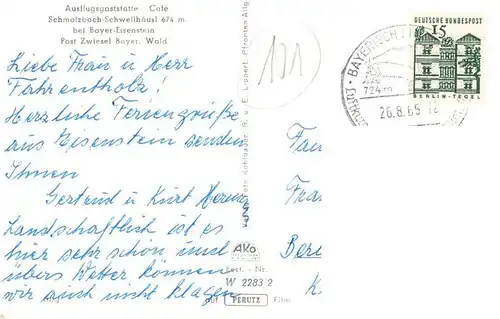 Ausflugsgaststätte Café
Schmalzbach-Schwellhäusl 674 m
bei Bayer.-Eisenstein
Post Zwiesel Bayer. Wald
Liebe Frau u Herr
Fahrenholz!
Herzliche Feriengrüße
aus Eisenstein senden
Ihnen
Gertrud u Kurt
Landschaftlich ist es
hier sehr schön und
übers Wetter können
wir auch nicht klagen
121
BAYERISCH
724 m
26.8.65-12
DEUTSCHE BUNDESPOST
15
BERLIN-TEGEL
Fam
Fra
Ber
AKO
Best.-Nr.
W 2283 2
auf PERUTZ Film